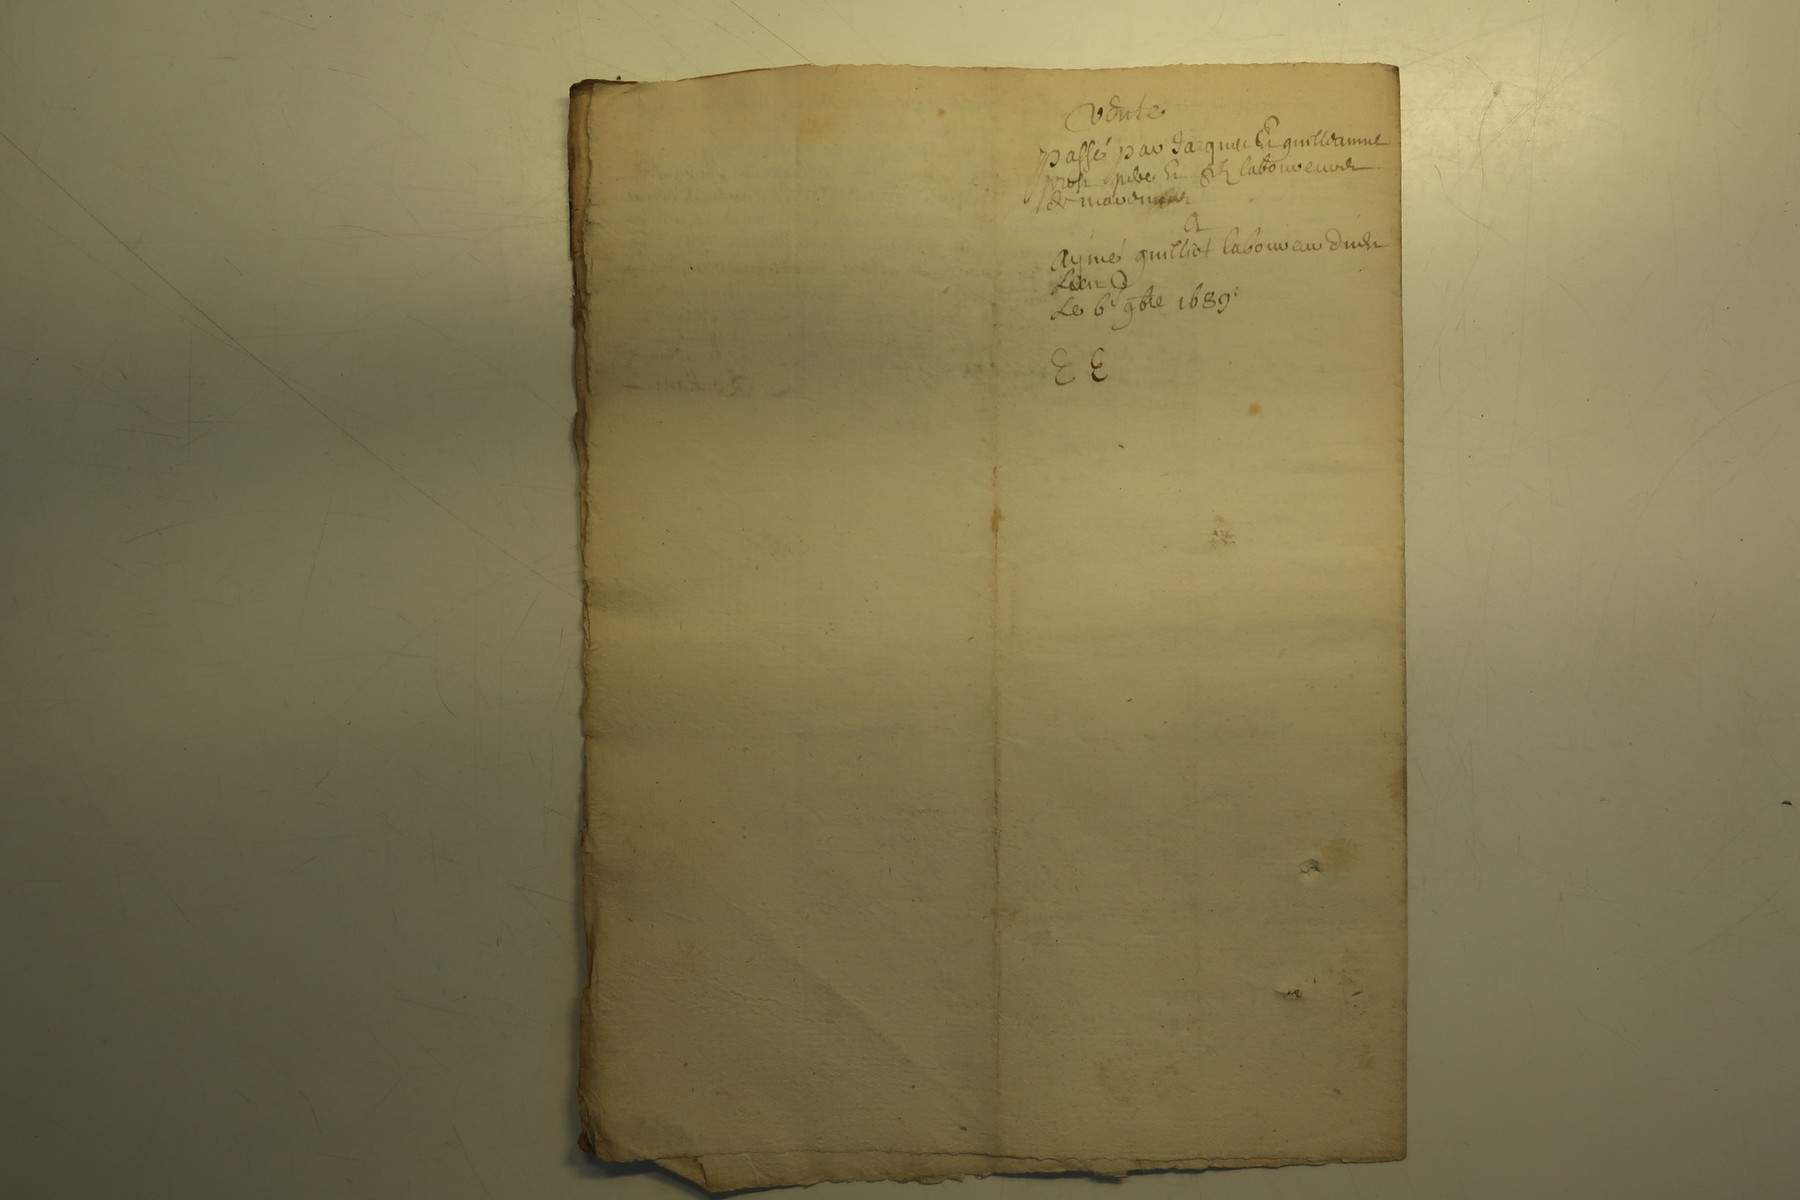 Vente
passé par Jacques Et guilleaume
pere Et filz laboureurs
de
A
Aymé guilliot laboureur dudit
Lieu
Le 6e 9bre 1689.
E E